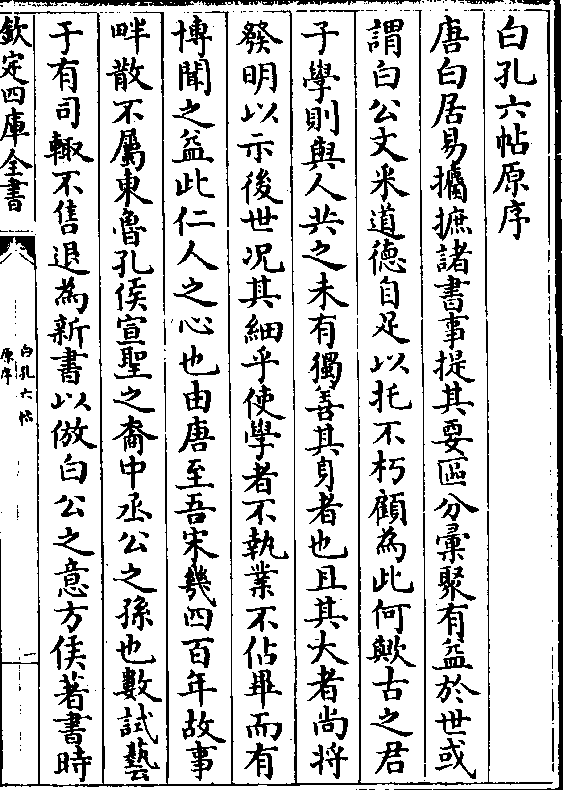 白孔六帖原序
唐白居易攟摭諸書事提其要區分彚聚有益於世或
謂白公文采道德自足以托不朽顧為此何歟古之君
子學則與人共之未有獨善其身者也且其大者尚將
發明以示後世况其細乎使學者不執業不佔畢而有
博聞之益此仁人之心也由唐至吾宋幾四百年故事
畔散不屬東魯孔侯宣聖之裔中丞公之孫也數試藝
于有司輙不售退為新書以倣白公之意方侯著書時
欽定四庫全書
白孔六帖
原序
一